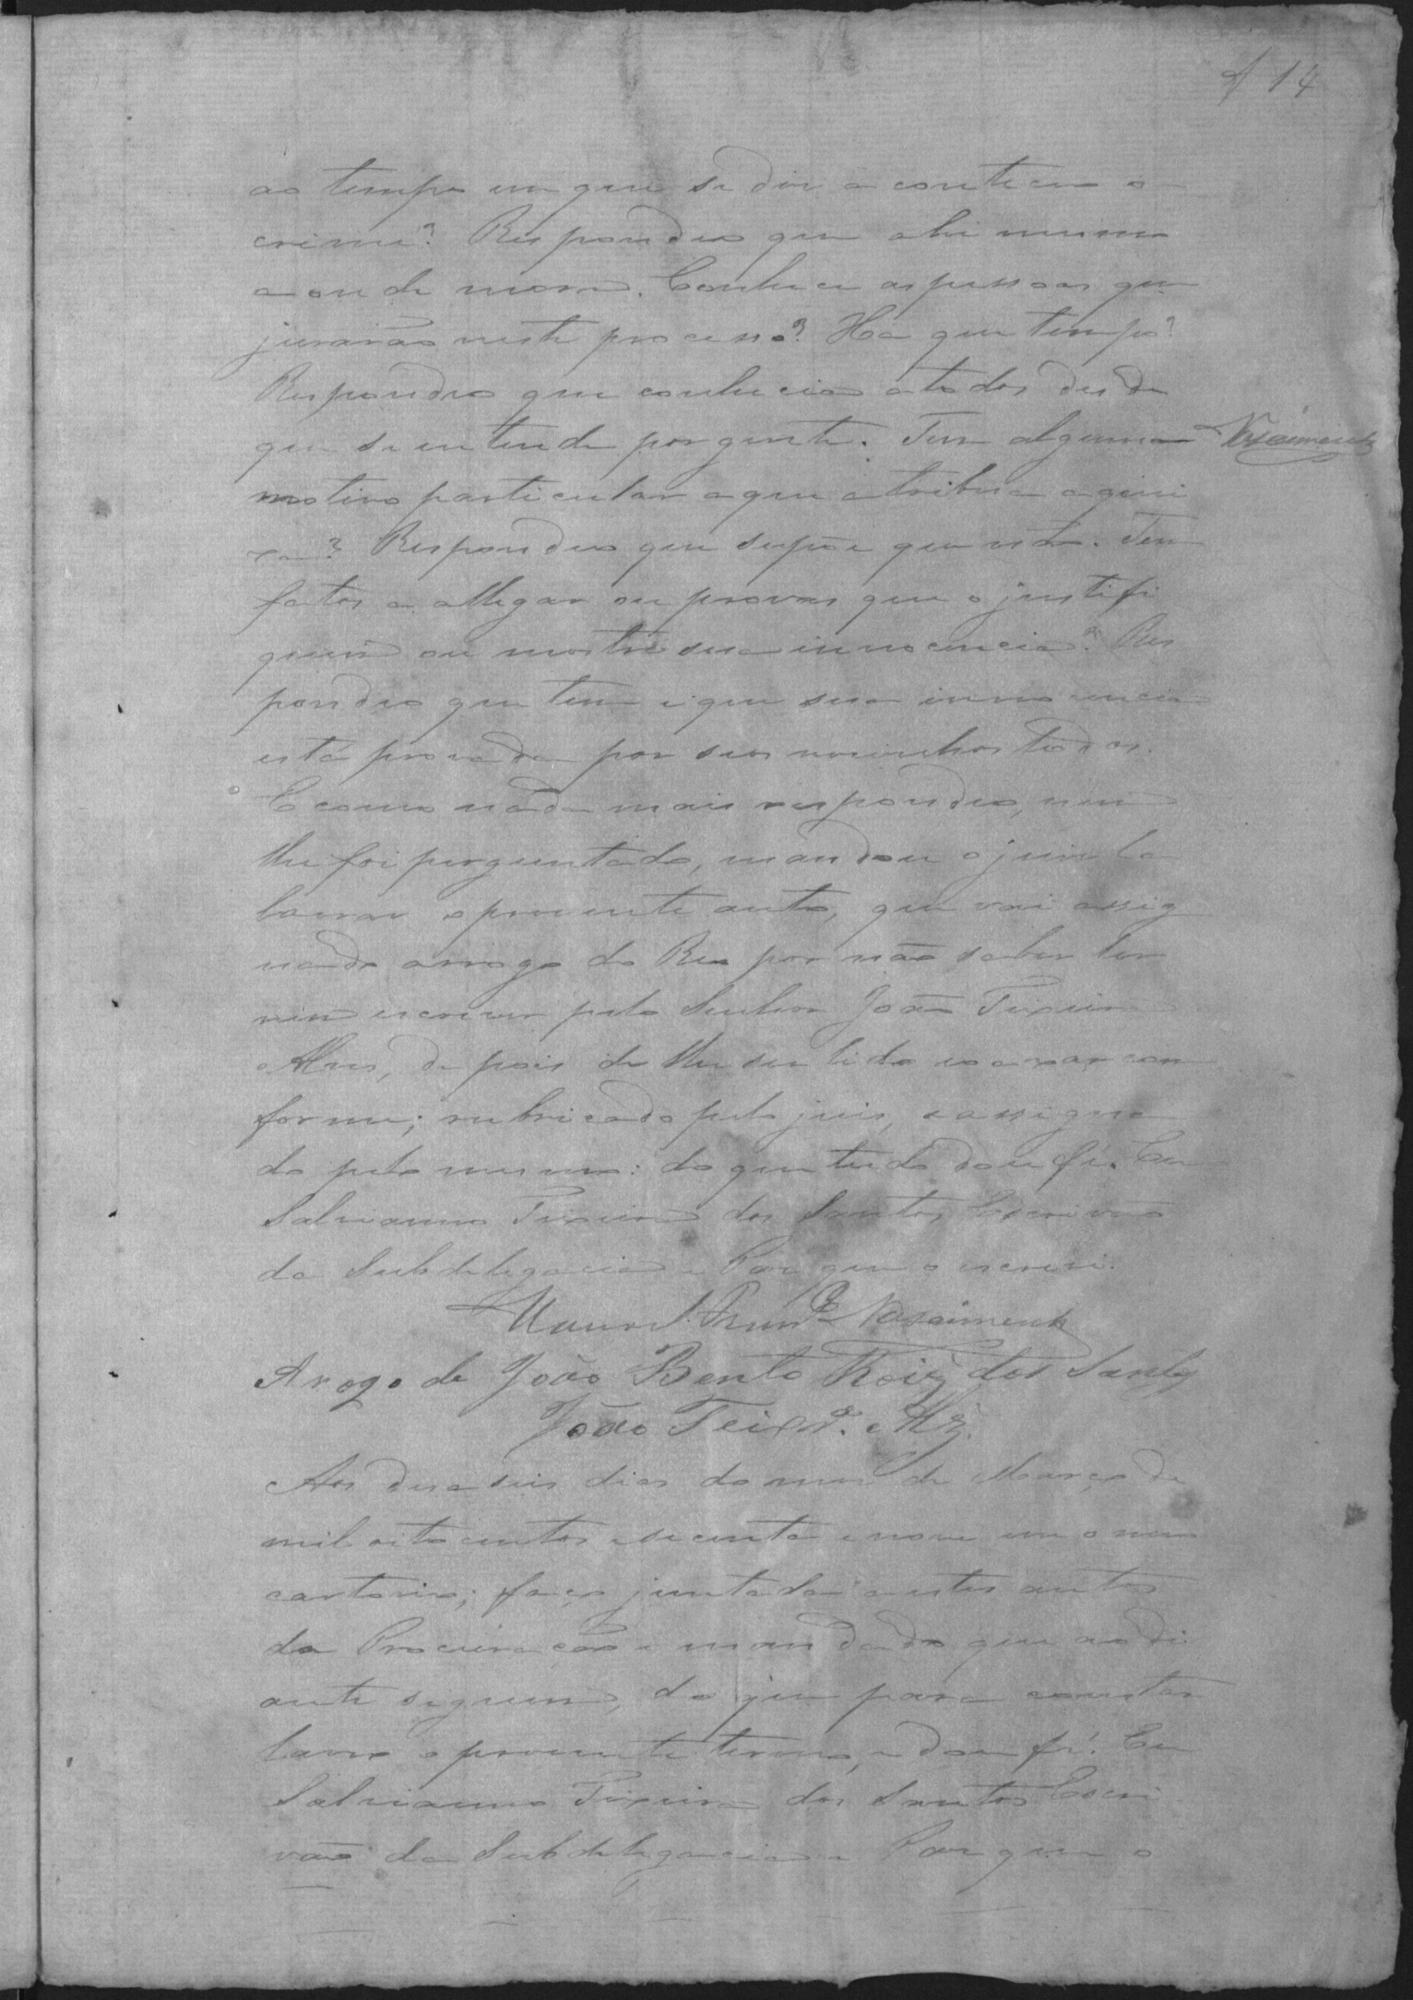 f 14
ao tempo em que se diz aconteceu o
crime? Respondeo que ahi mesmo
aonde mora. Conhece as pessoas que
jurarão neste processo? Ha que tempo?
Respondeo que conhecia a todos desde
que se entende por gente. Tem algum
Nascimento
motivo particular a que atribua a quei
xa? Respondeo que supõe que não. Tem
fatos a allegar ou provas que o justifi
quem ou mostre sua innocencia? Res
pondeo que tem e que sua innocencia
está provada por seos vesinhos todos.
E como nada mais respondeo, nem
lhe foi perguntado, mandou o juiz la
lavrar o presente auto, que vai assig
nado arrogo do Reo por não saber ler
nem escrever pelo Senhor João Teixeira
Alves, depois de lhe ser lido e o axar con
forme; rubricado pelo juis, e assigna
do pelo mesmo: do que tudo dou fé. Eu
Salvianno Teixeira dos Santos Escrivão
da Subdelegacia e Paz que o escrevi.
Manoel Fran.co Nascimento
A rogo de João Bento Roiz dos Santos
João Teixr.a Alz.
Aos deseseis dias do mes de Março de
mil oitocentos e secenta e nove em o meu
cartorio; faço juntada a estes autos
da Procuração e mandado que ao di
ante seguem, do que para constar
lavro o presente termo, e dou fé. Eu
Salvianno Teixeira dos Santos Escri
vão da Subdelegacia e Paz que o